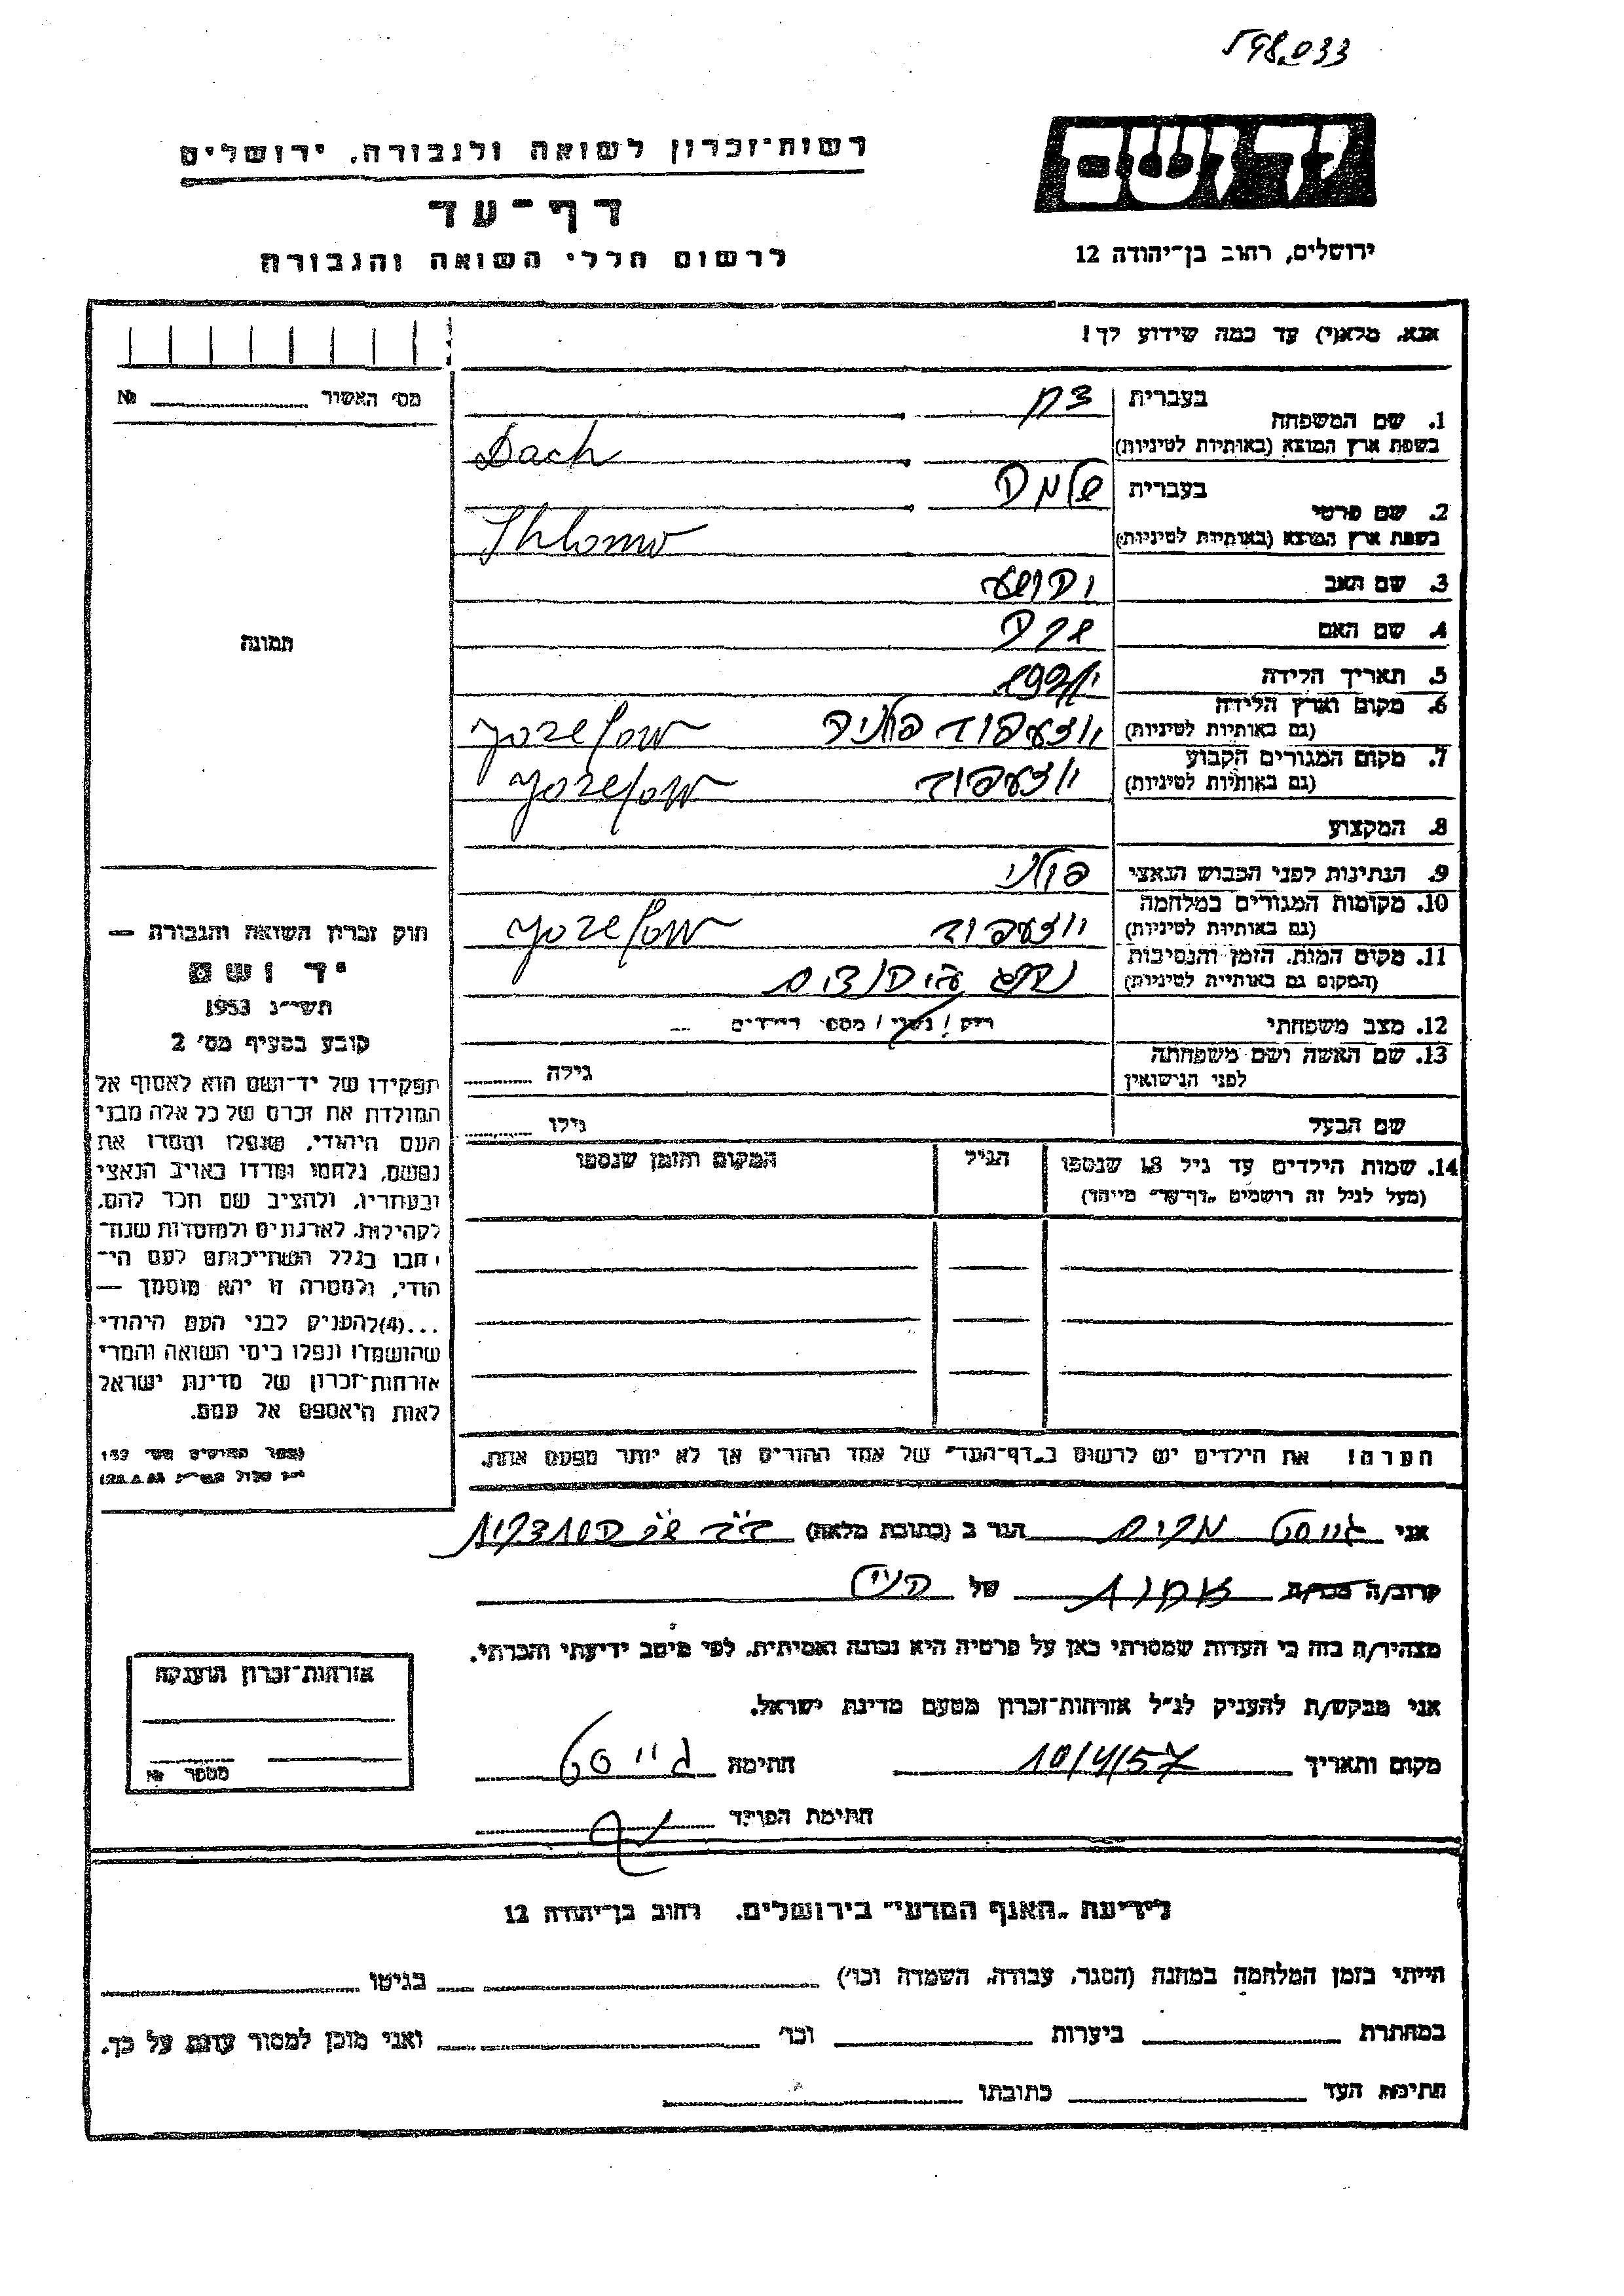 598.033
יד ושם
רשות־זכרון לשואה ולגבורה, ירושלים
דף־עד
לרשום חללי השואה והגבורה
ירושלים, רחוב בן־יהודה 12
אנא, מלא(י) עד כמה שידוע לך!
מס׳ האשור №
1. שם המשפחה
בעברית
בשפת ארץ המוצא (באותיות לטיניות)
Dach
2. שם פרטי
בעברית שלמה
בשפת ארץ המוצא (באותיות לטיניות)
Shlomo
3. שם האב יהושע
4. שם האם
5. תאריך הלידה
6. מקום וארץ הלידה
(גם באותיות לטיניות) יוזעפוב פולניה Yozefow
7. מקום המגורים הקבוע
(גם באותיות לטיניות) יוזעפוב Yozefow
8. המקצוע
9. הנתינות לפני הכבוש הנאצי פולני
10. מקומות המגורים במלחמה
(גם באותיות לטיניות) יוזעפוב Yozefow
11. מקום המות, הזמן והנסיבות
(המקום גם באותיות לטיניות)
12. מצב משפחתי רוק / נשוי / מספר הילדים
13. שם האשה ושם משפחתה
לפני הנישואין גילה
שם הבעל גילו
14. שמות הילדים עד גיל 18 שנספו הגיל המקום והזמן שנספו
(מעל לגיל זה רושמים „דף־עד״ מיוחד)
הערה! את הילדים יש לרשום ב„דף־העד״ של אחד ההורים אך לא יותר מפעם אחת.
תמונה
חוק זכרון השואה והגבורה —
יד ושם
תשי״ג 1953
קובע בסעיף מס׳ 2
תפקידו של יד־ושם הוא לאסוף אל
המולדת את זכרם של כל אלה מבני
העם היהודי, שנפלו ומסרו את
נפשם, נלחמו ומרדו באויב הנאצי
ובעוזריו, ולהציב שם וזכר להם,
לקהילות, לארגונים ולמוסדות שנח־
רבו בגלל השתייכותם לעם הי־
הודי, ולמטרה זו יהא מוסמך —
...(4)להעניק לבני העם היהודי
שהושמדו ונפלו בימי השואה והמרי
אזרחות־זכרון של מדינת ישראל
לאות היאספם אל עמם.
אני גייסט מרים הגר ב (כתובת מלאה)
קרוב/ה מכר/ה של
מצהיר/ה בזה כי העדות שמסרתי כאן על פרטיה היא נכונה ואמיתית, לפי מיטב ידיעתי והכרתי.
אני מבקש/ת להעניק לנ״ל אזרחות־זכרון מטעם מדינת ישראל.
מקום ותאריך 10/4/57 חתימה גייסט
חתימת הפוקד
אזרחות־זכרון הוענקה
מספר №
לידיעת „האגף המדעי״ בירושלים, רחוב בן־יהודה 12
הייתי בזמן המלחמה במחנה (הסגר, עבודה, השמדה וכו׳) בגיטו
במחתרת ביערות וכו׳ ואני מוכן למסור עדות על כך.
חתימת העד כתובתו